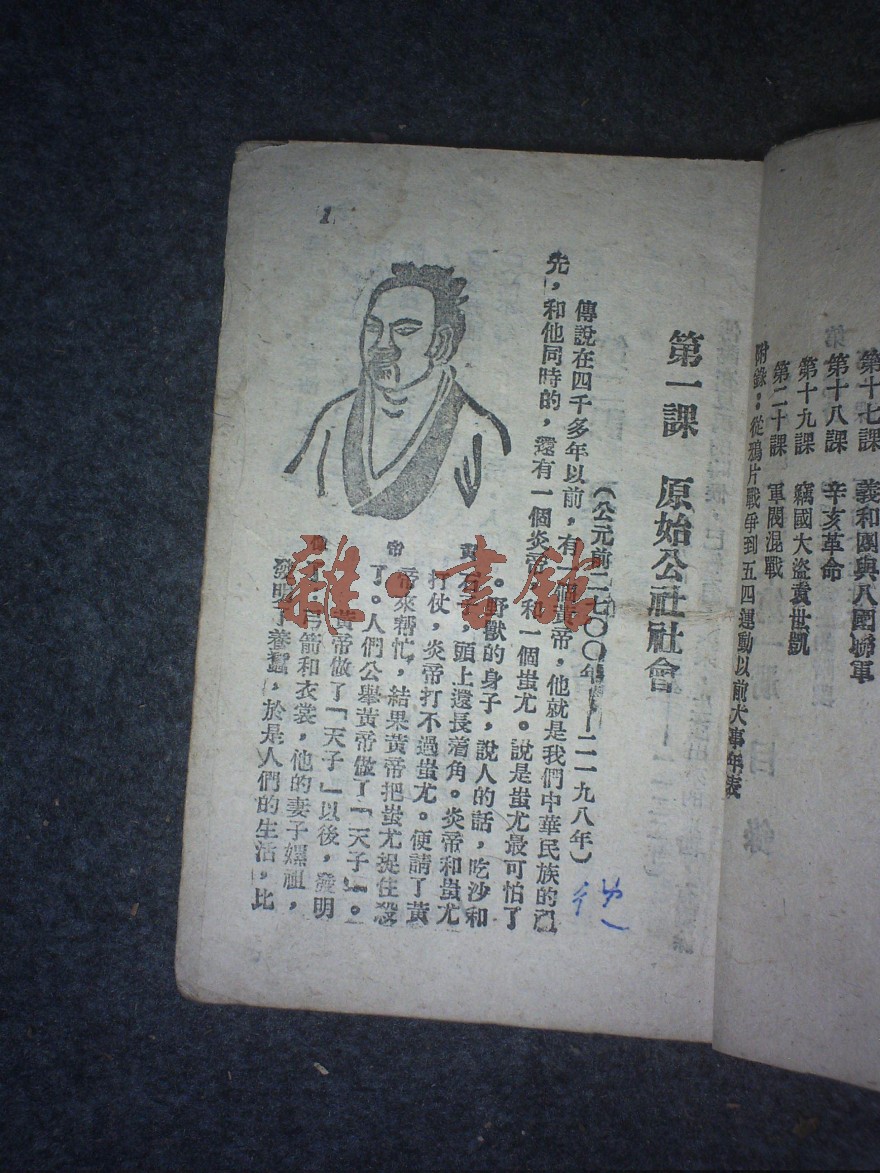 第十七課　義和團與八國聯軍
第十八課　辛亥革命
第十九課　竊國大盜袁世凱
第二十課　軍閥混戰
附錄：從鴉片戰爭到五四運動以前大事年表
1
第一課　原始公社社會
（公元前二七〇〇年——二一九八年）
傳說在四千多年以前，有一個黃帝，他就是我們中華民族的祖
先，和他同時的，還有一個炎帝和一個蚩尤。說是蚩尤最可怕了
。野獸的身子，說人的話，吃沙和
石子，頭上還長着角。炎帝和蚩尤
打仗，炎帝打不過蚩尤。便請了黃
帝來幫忙，結果黃帝把蚩尤捉住殺
了。人們公舉黃帝做了「天子」。
黃帝做了「天子」以後，發明
了弓箭和衣裳，他的妻子嫘祖，
發明了養蠶，於是人們的生活，比
黃
帝
雜·書館